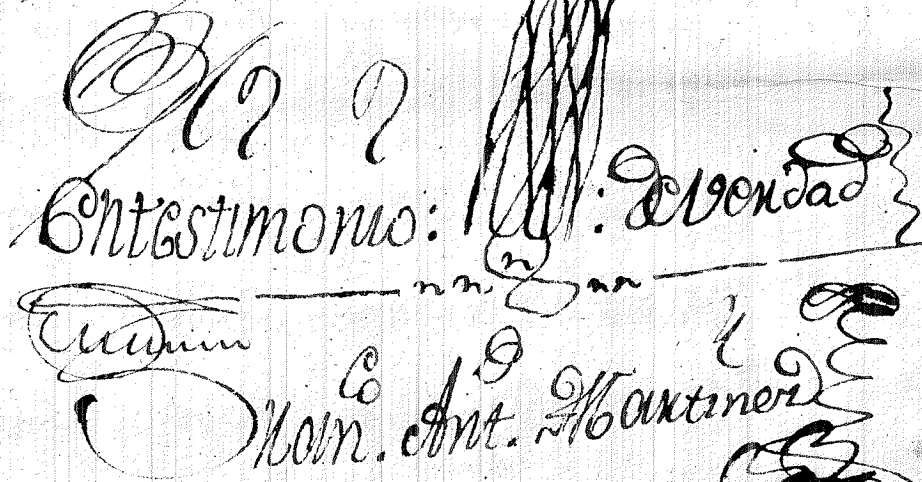 Entestimonio: : deVerdad
Fran.co Ant.o Martinez